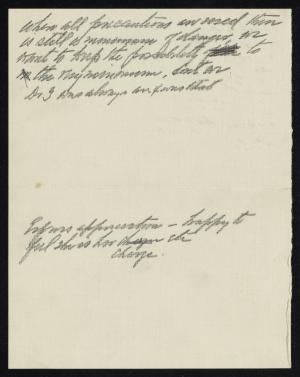 When all precautions are used there
is still a minimum of danger, we
want to keep the possibility to
the minimum, but as
Dr. J was always
Express appreciation – happy to
feel she is in charge etc
charge.